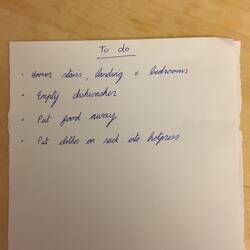 To do
· Hoover stairs, landing & bedrooms
· Empty dishwasher
· Put food away
· Put clothes on rack into hotpress